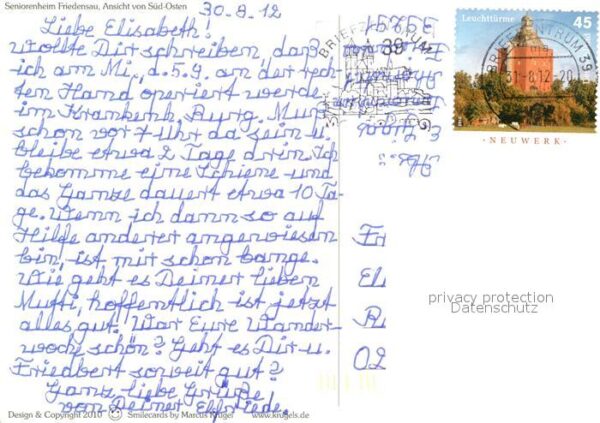 Seniorenheim Friedensau, Ansicht von Süd-Osten
30.8.12
Liebe Elisabeth!
Wollte Dir schreiben, daß
ich am Mi, d. 5.9. an der rech-
ten Hand operiert werde
im Krankenh. Burg. Muß
schon vor 7 Uhr da sein u.
bleibe etwa 2 Tage drin. Ich
bekomme eine Schiene und
das Ganze dauert etwa 10 Ta-
ge. Wenn ich dann so auf
Hilfe anderer angewiesen
bin, ist mir schon bange.
Wie geht es Deiner lieben
Mutti, hoffentlich ist jetzt
alles gut! War Eure Wander-
woche schön? Geht es Dir u.
Friedbert soweit gut?
Ganz liebe Grüße
von Deiner Elfriede.
Design & Copyright 2010 Smilecards by Marcus Krüger www.krugels.de
BRIEFZENTRUM
39
Leuchttürme 45
BRIEFZENTRUM 39
31.-8.12.-20
NEUWERK
39291
Fri
El
R
02
privacy protection
Datenschutz